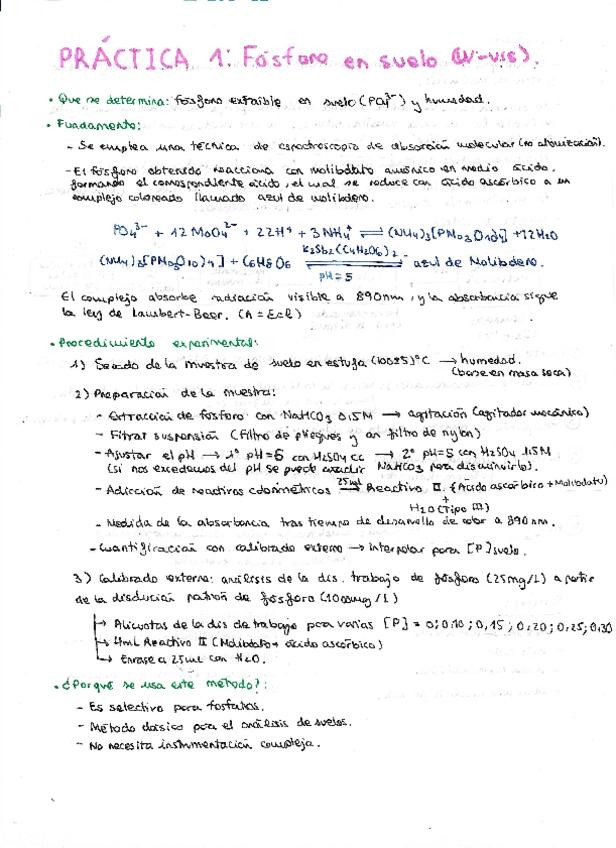 PRÁCTICA 1: Fósforo en suelo (UV-VIS).
• Que se determina: fósforo extraíble en suelo (PO4³⁻) y humedad.
• Fundamento:
- Se emplea una técnica de espectroscopia de absorción molecular (no atomización).
- El fósforo obtenido reacciona con molibdato amónico en medio ácido,
formando el correspondiente ácido, el cual se reduce con ácido ascórbico a un
complejo coloreado llamado azul de molibdeno.
PO4³⁻ + 12 MoO4²⁻ + 22H⁺ + 3 NH4⁺ ⇌ (NH4)3[PMo3O10)4] + 12 H2O
K2Sb2(C4H2O6)2
(NH4)3[PMo3O10)4] + C6H8O6 ⇌ azul de Molibdeno.
pH=5
El complejo absorbe radiación visible a 890nm, y la absorbancia sigue
la ley de Lambert-Beer. (A = Ecl)
• Procedimiento experimental:
1) Secado de la muestra de suelo en estufa (100±5)°C → humedad.
(base en masa seca)
2) Preparación de la muestra:
- Extracción de fósforo con NaHCO3 0,5M → agitación (agitador mecánico)
- Filtrar suspensión (Filtro de pliegues y un filtro de nylon)
- Ajustar el pH → 1° pH=6 con H2SO4 cc → 2° pH=5 con H2SO4 1,5M
(si nos excedemos del pH se puede añadir NaHCO3 para disminuirlo).
- Adicción de reactivos colorimétricos 25ml → Reactivo II. (Ácido ascórbico + Molibdato)
+
H2O (Tipo III)
- Medida de la absorbancia tras tiempo de desarrollo de color a 890 nm.
- Cuantificación con calibrado externo → interpolar para [P]suelo.
3) Calibrado externo: análisis de la dis. trabajo de fósforo (25mg/L) a partir
de la disolución patrón de fósforo (1000mg/L)
→ Alicuotas de la dis de trabajo para varias [P] = 0; 0,10; 0,15; 0,20; 0,25; 0,30
→ 4ml Reactivo II (Molibdato + ácido ascórbico)
→ Enrase a 25ml con H2O.
• ¿Porqué se usa este método?:
- Es selectivo para fosfatos.
- Método clásico para el análisis de suelos.
- No necesita instrumentación compleja.